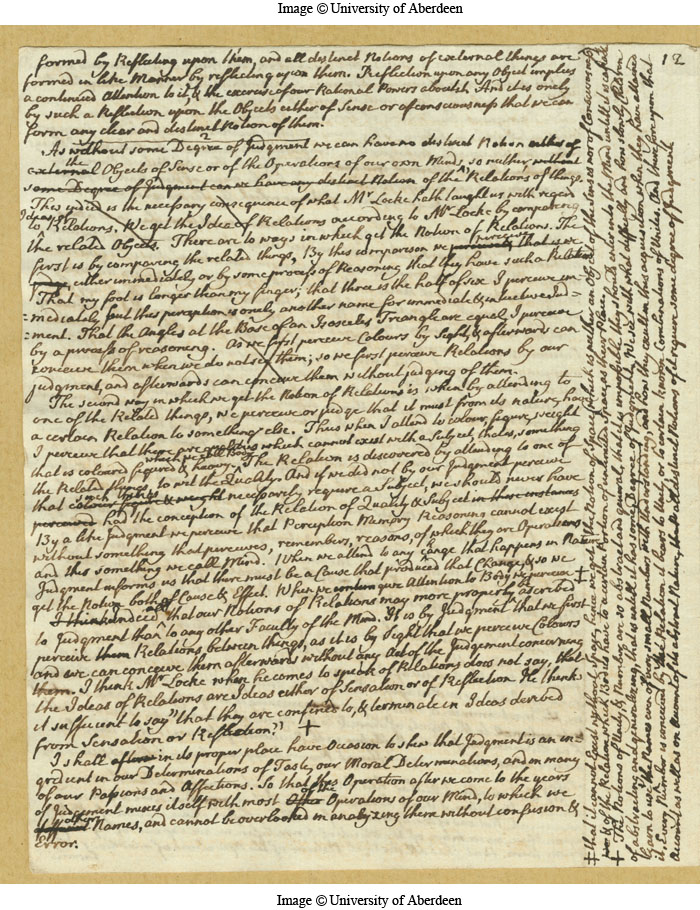 Image © University of Aberdeen
12
formed by Reflecting upon them, and all distinct Notions of external things are
formed in like Manner by reflecting upon them. Reflection upon any Object implies
a continued Attention to it, & the exercise of our Rational Powers about it. And it is onely
by such a Reflection upon the Objects either of Sense or of consciousness that we can
form any clear and distinct Notion of them.
As without some Degree of Judgment we can have no distinct Notion either of
the
external Objects of Sense or of the Operations of our own Mind, so neither without
some Degree of Judgment can we have any distinct Notion of the Relations of things.
This indeed is the necessary consequence of what Mr Locke hath taught us with regard
Ideas of
to Relations. We get the Idea of Relations according to Mr Locke by comparing
the related Objects. There are to ways in which get the Notion of Relations. The
first is by comparing the related things, By this comparison we perceive that
either immediately or by some process of Reasoning that they have such a Relation
That my foot is longer than my finger; that three is the half of six I perceive im=
=mediately and this perception is onely another name for immediate & intuitive Jud=
=ment. That the Angles at the Base of an Isosceles Triangle are equal I perceive
by a process of reasoning. As we first perceive Colours by Sight & afterwards can
conceive them when we do not see them; so we first perceive Relations by our
judgment, and afterwards can conceive them without judging of them.
The second way in which we get the Notion of Relations is when by attending to
one of the Related things, we perceive or judge that it must from its nature have
a certain Relation to something else. Thus when I attend to colour, figure, weight
I perceive that these are qualities which cannot exist without a Subject, that is, something
that is coloured figured & heavy. The Relation is discovered by attending to one of
the Related things, to wit the Quality. And if we did not by our Judgment perceive
that such things necessarily require a Subject, we should never have
perceived had the conception of the Relation of Quality & Subject in these instances
By a like Judgment we perceive that Perception Memory Reasoning cannot exist
without something that perceives, remembers, reasons, of which they are Operations
and this something we call Mind. When we attend to any Change that happens in Nature
Judgment informs us that there must be a Cause that produced that Change, & so we
get the Notion both of Cause & Effect. When we give Attention to Body we perceive
I think indeed that our Notions of Relations may more properly be ascribed
to Judgment than to any other Faculty of the Mind. It is by Judgment that we first
perceive them Relations between things, as it is by Sight that we perceive Colours
and we can conceive them afterwards without any Act of the Judgment concerning
them. I think Mr Locke when he comes to speak of Relations does not say, that
the Ideas of Relations are Ideas either of Sensation or of Reflection He thinks
it sufficient to say "that they are confined to, & terminate in Ideas derived
from Sensation or Reflection."
I shall in its proper place have Occasion to shew that Judgment is an in=
gredient in our Determinations of Taste, our Moral Determinations, and in many
of our Passions and Affections. So that this Operation after we come to the years
of the
of Judgment mixes itself with most Operations of our Mind, to which we
give other Names, and cannot be overlooked in analyzing them without confusion &
Error.
that it cannot Exist without space; hence we get the Notion of Space, which is neither an Object of the Senses nor of Consciousness
& of the Relation which Bodies have to a certain Portion of unlimited Space, as their Place
The Notions of Unity & Number are so abstract and general, that it is impossible they should enter into the Mind until it is capable
of abstracting and generalizing, that is untill it has some Degree of Judgment. We see with what difficulty, and how slowly Children
learn to use the Names even of small Numbers with Understanding, and how they exult in this acquisition when they have attained
it. Every Number is conceived by that Relation it bears to Unity or to certain known Combinations of Unites. And therefore upon that
Account, as well as on Account of its abstract Nature, that all distinct Notions of it require some degree of Judgment
Image © University of Aberdeen